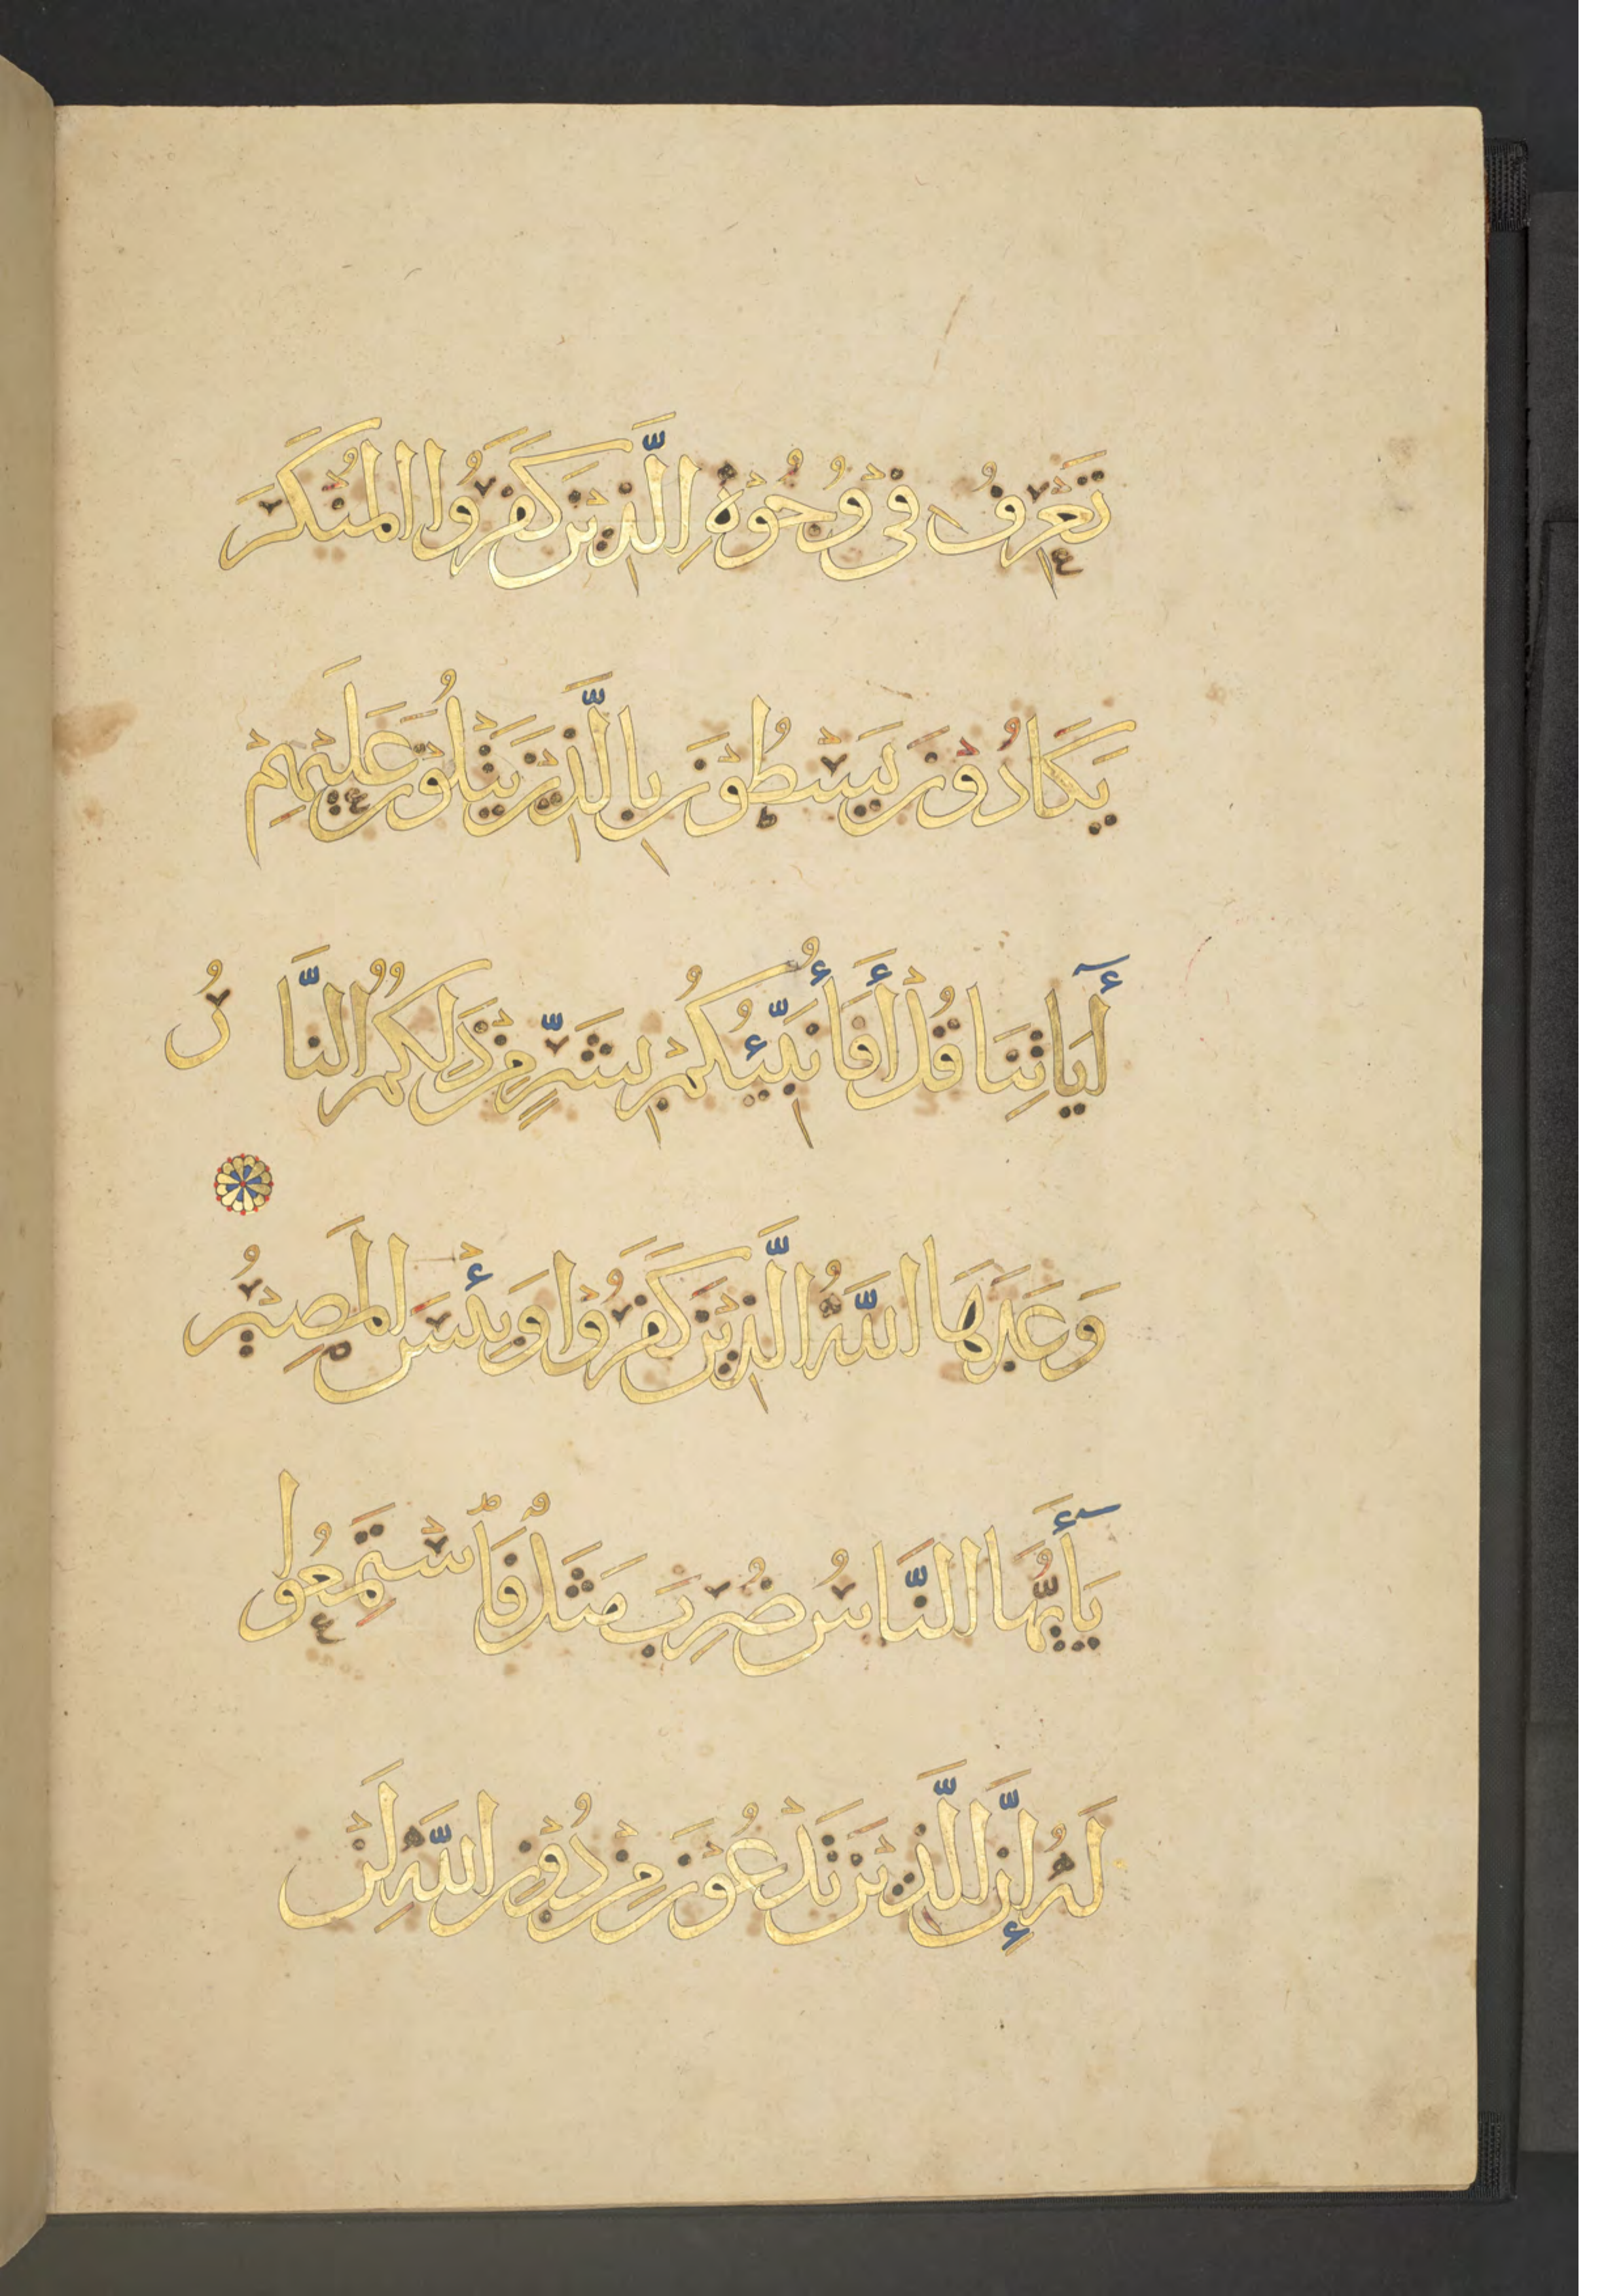 تَعْرِفُ فِي وُجُوْهِ الَّذِيْنَ كَفَرُوا الْمُنْكَرَ
يَكَادُوْنَ يَسْطُوْنَ بِالَّذِيْنَ يَتْلُوْنَ عَلَيْهِمْ
أٓيَاتِنَا قُلْ أَفَأُنَبِّئُكُمْ بِشَرٍّ مِنْ ذَلِكُمُ النَّارُ
وَعَدَهَا اللَّهُ الَّذِيْنَ كَفَرُوْا وَبِئْسَ الْمَصِيْرُ
يَٓأَيُّهَا النَّاسُ ضُرِبَ مَثَلٌ فَاسْتَمِعُوا
لَهُ إِنَّ الَّذِيْنَ تَدْعُوْنَ مِنْ دُوْنِ اللَّهِ لَنْ